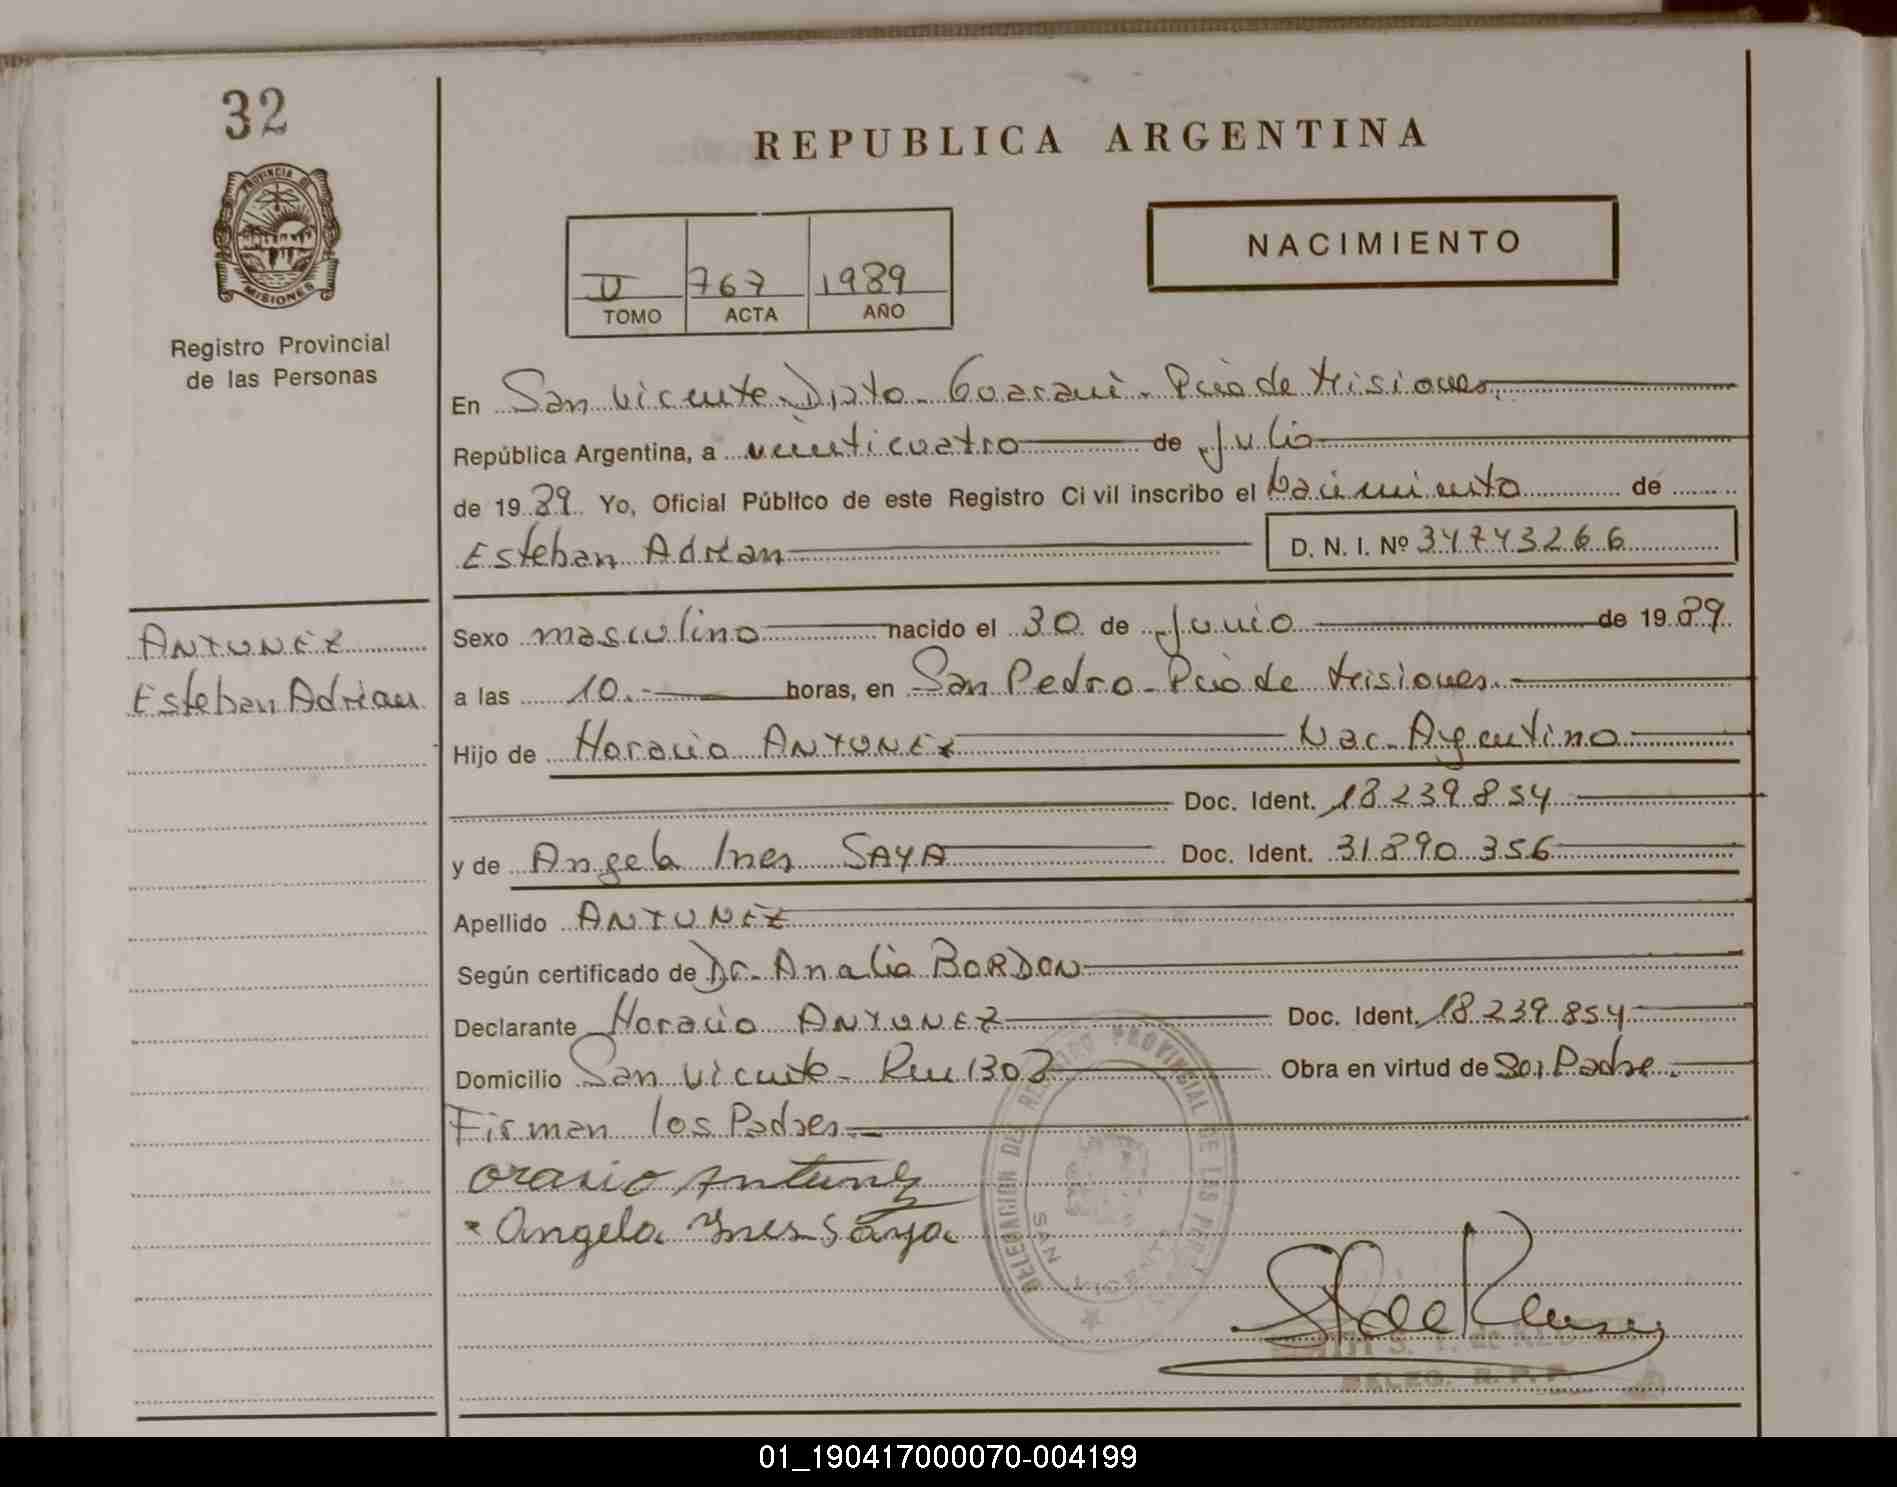 32
PROVINCIA DE
MISIONES
Registro Provincial
de las Personas
REPUBLICA ARGENTINA
NACIMIENTO
II 767 1989
TOMO ACTA AÑO
En San Vicente Dpto. Guarani - Pcia de Misiones
República Argentina, a veinticuatro de Julio
de 1989 Yo, Oficial Público de este Registro Civil inscribo el Nacimiento de
Esteban Adrian D. N. I. Nº 34743266
ANTUNEZ
Esteban Adrian
Sexo masculino nacido el 30 de Junio de 1989
a las 10.- horas, en San Pedro - Pcia de Misiones.
Hijo de Horacio ANTUNEZ Nac. Argentino
Doc. Ident. 18.239.854
y de Angela Ines SAYA Doc. Ident. 31.890.356
Apellido ANTUNEZ
Según certificado de Dr. Analia BORDON
Declarante Horacio ANTUNEZ Doc. Ident. 18.239.854
Domicilio San Vicente - 1303 Obra en virtud de Padre.
Firman los Padres.
orasio Antunez
Angela Ines Saya
DELEGACION DEL REGISTRO PROVINCIAL DE LAS
SAN VICENTE
S. T. de
DELEG. R. P. P.
01_190417000070-004199